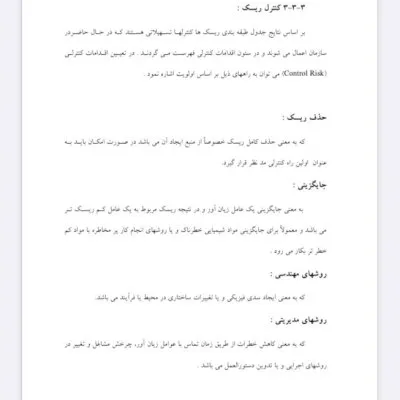 ۳-۳-۳ کنترل ریسک :
بر اساس نتایج جدول طبقه بندی ریسک ها کنترلها تسهیلاتی هستند که در حال حاضردر
سازمان اعمال می شوند و در ستون اقدامات کنترلی فهرست می گردند . در تعیین اقدامات کنترلی
(Control Risk) می توان به راههای ذیل بر اساس اولویت اشاره نمود .
حذف ریسک :
که به معنی حذف کامل ریسک خصوصاً از منبع ایجاد آن می باشد در صورت امکان باید به
عنوان اولین راه کنترلی مد نظر قرار گیرد.
جایگزینی :
به معنی جایگزینی یک عامل زیان آور و در نتیجه ریسک مربوط به یک عامل کم ریسک تر
می باشد و معمولاً برای جایگزینی مواد شیمیایی خطرناک و یا روشهای انجام کار پر مخاطره با مواد کم
خطر تر بکار می رود .
روشهای مهندسی :
که به معنی ایجاد سدی فیزیکی و یا تغییرات ساختاری در محیط یا فرآیند می باشد.
روشهای مدیریتی :
که به معنی کاهش خطرات از طریق زمان تماس با عوامل زیان آور، چرخش مشاغل و تغییر در
روشهای اجرایی و یا تدوین دستورالعمل می باشد .